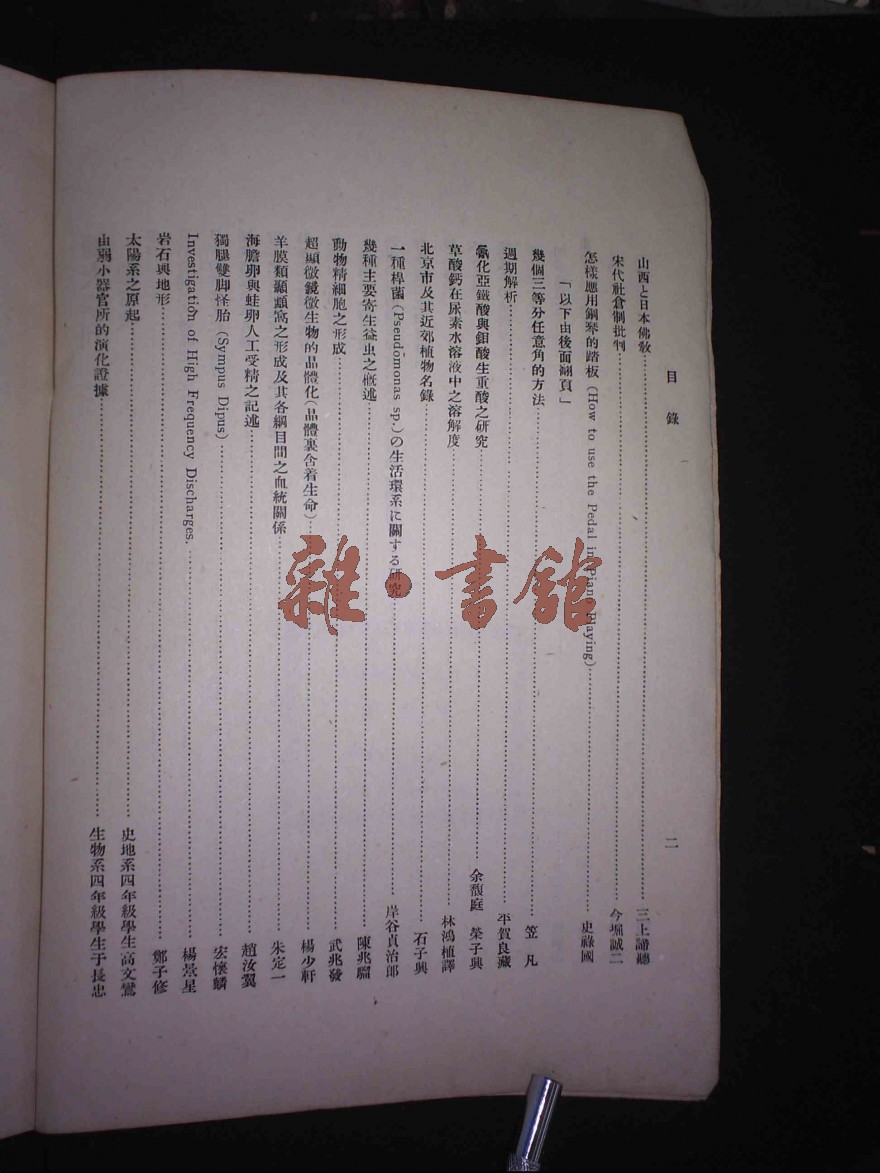 目錄
二
山西と日本佛敎……三上諦聽
宋代社倉制批判……今堀誠二
怎樣應用鋼琴的踏板 (How to use the Pedal in Piano Playing)……史祿國
「以下由後面翻頁」
幾個三等分任意角的方法……笠凡
週期解析……平賀良藏
氰化亞鐵酸與鉬酸生重酸之研究……余馥庭 榮子興
草酸鈣在尿素水溶液中之溶解度……林鴻植譯
北京市及其近郊植物名錄……石子興
一種桿菌 (Pseudomonas sp.) の生活環系に關する研究……岸谷貞治郎
幾種主要寄生益虫之概述……陳兆騮
動物精細胞之形成……武兆發
超顯微鏡微生物的晶體化(晶體裏含着生命)……楊少軒
羊膜類顯顳窩之形成及其各綱目間之血統關係……朱定一
海膽卵與蛙卵人工受精之記述……趙汝翼
獨腿雙脚怪胎 (Sympus Dipus)……宏懷麟
Investigation of High Frequency Discharges.……楊景星
岩石與地形……鄭子修
太陽系之原起……史地系四年級學生高文鸞
由弱小器官所的演化證據……生物系四年級學生于長忠
雜·書館